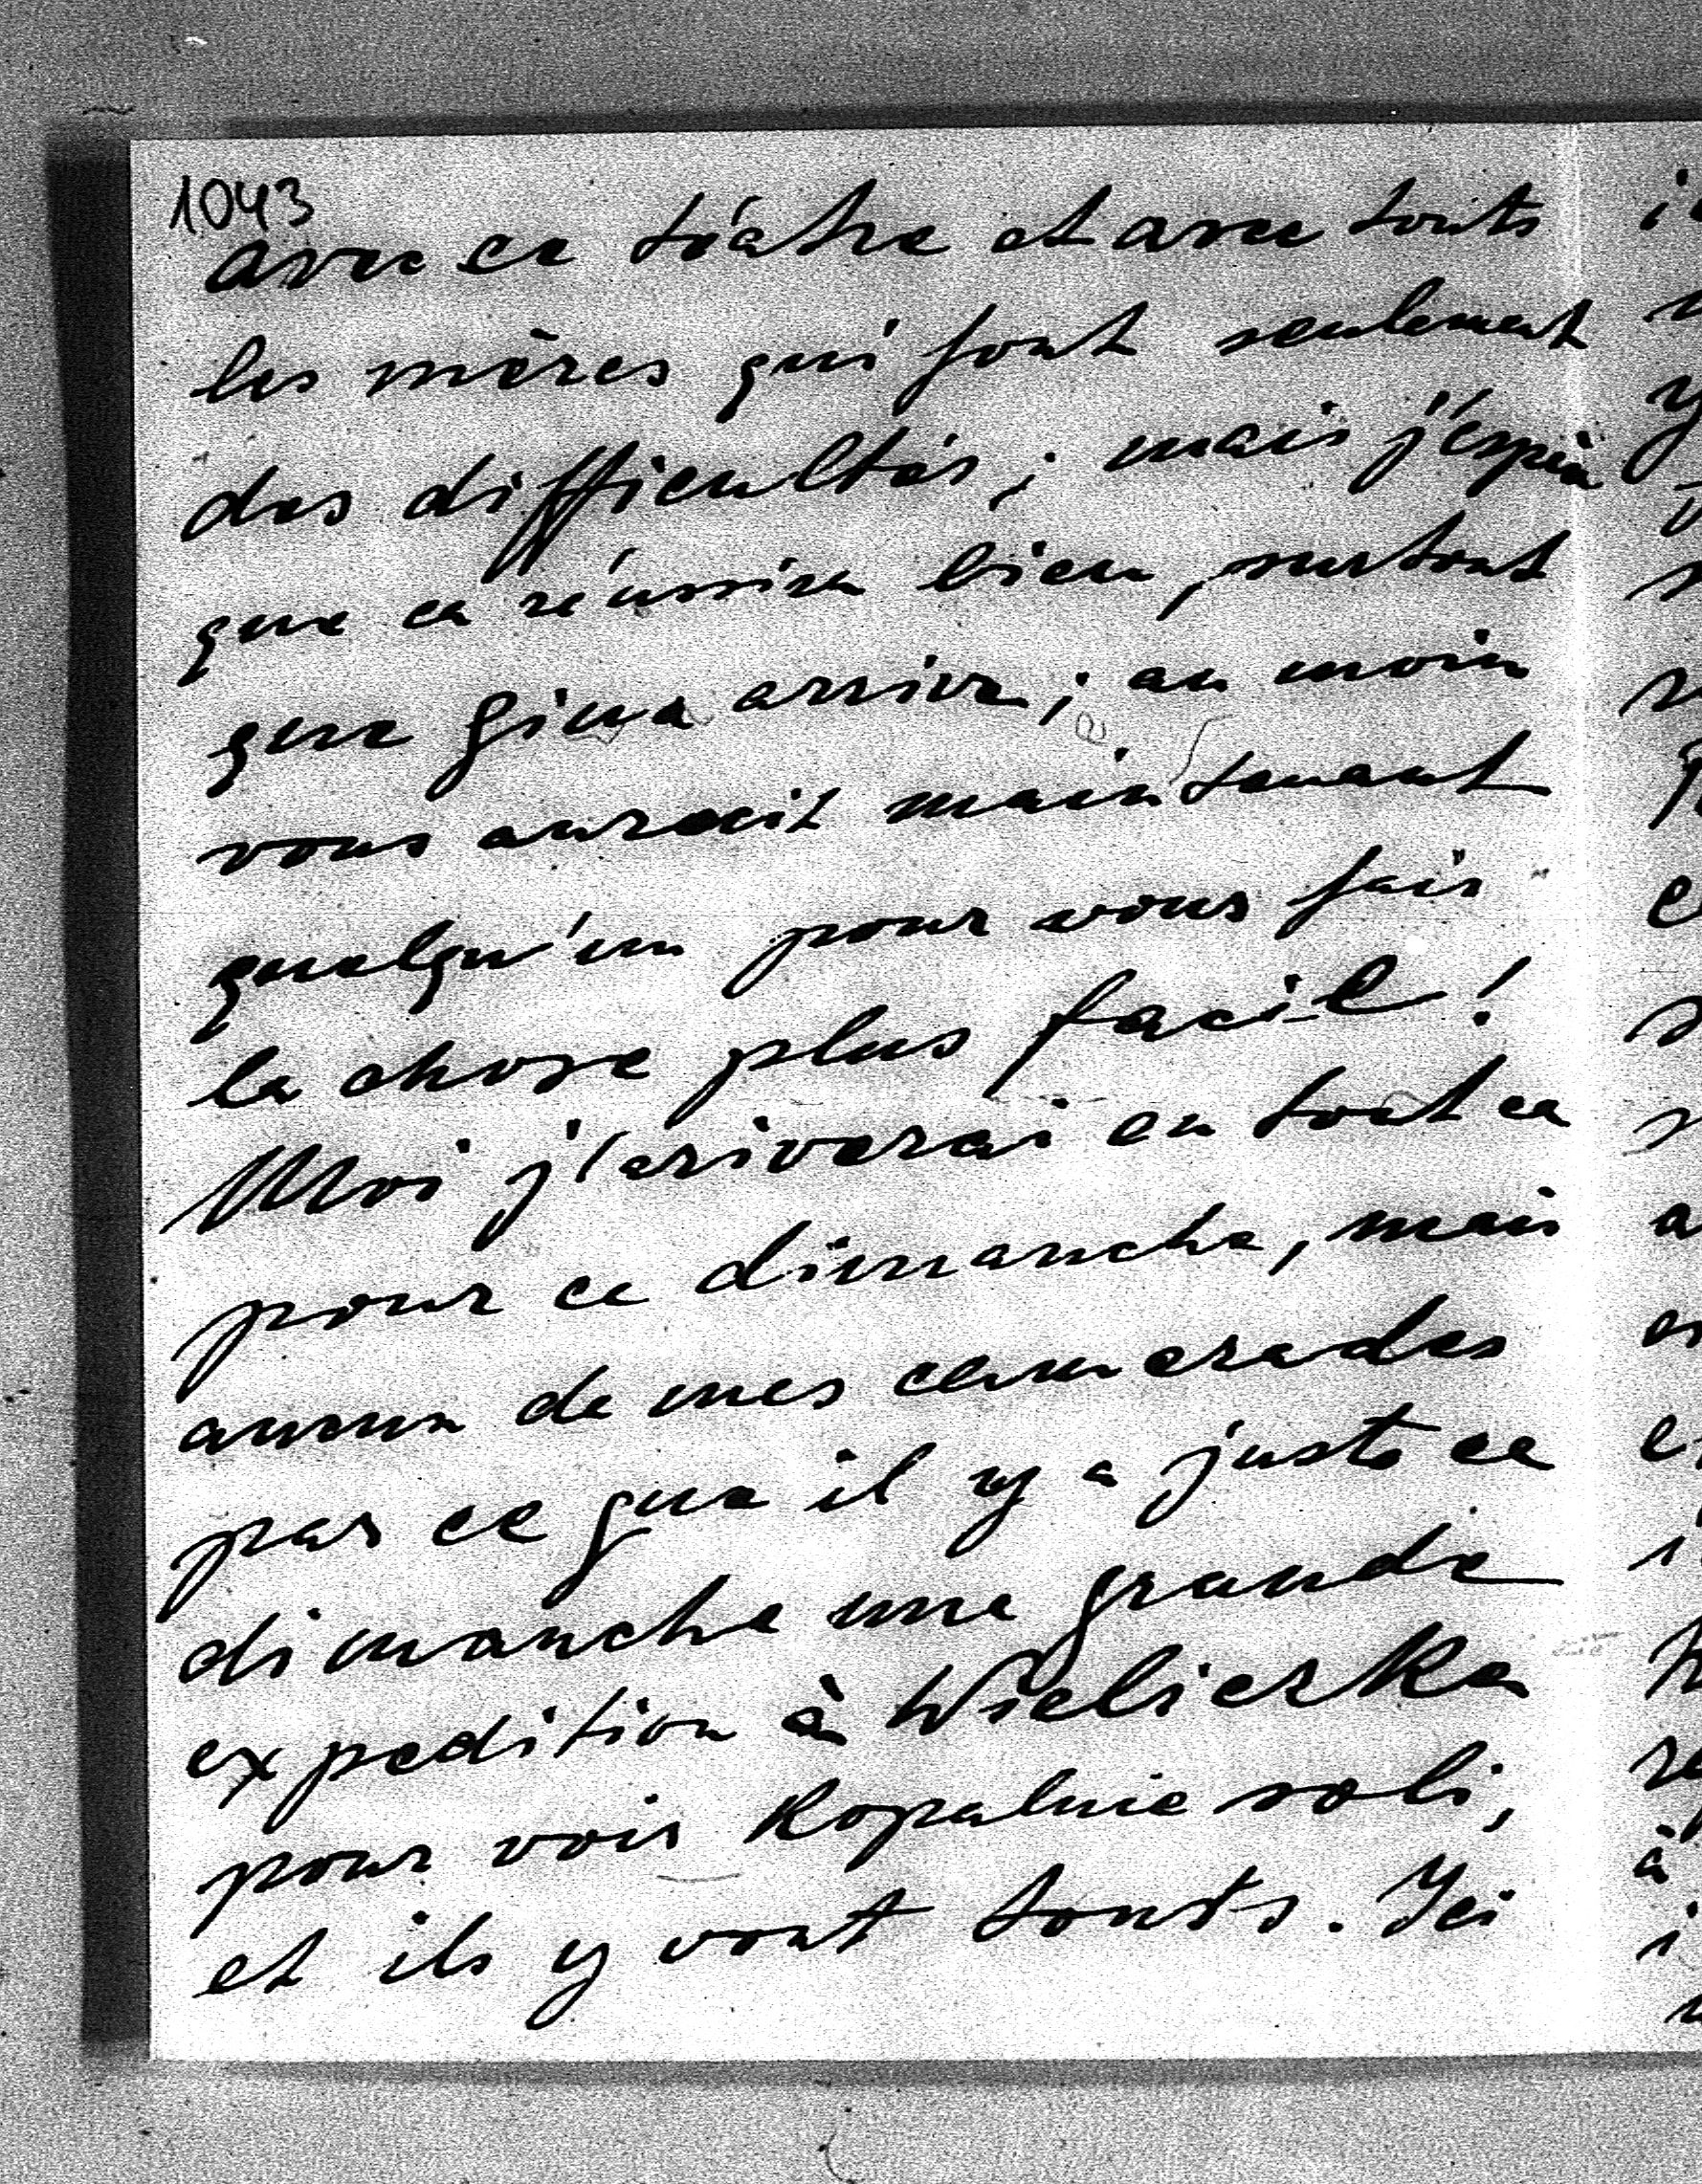 1043
avec ce téâtre et avec touts
les mères qui font seulement
des difficultés; mais j'éspère
que ca réussira bien, surtout
que Gina arrive; au moin
vous auroit maintenant
quelqu'un pour vous fair
la chose plus facil!
Moi j'ariverai en tout ca
pour ce dimanche, mais
aucun de mes camerades
par ce que il y a juste ce
dimanche une grande
expedition à Wieliczka
pour voir Kopalnie soli,
et ils y vont touts. Ici